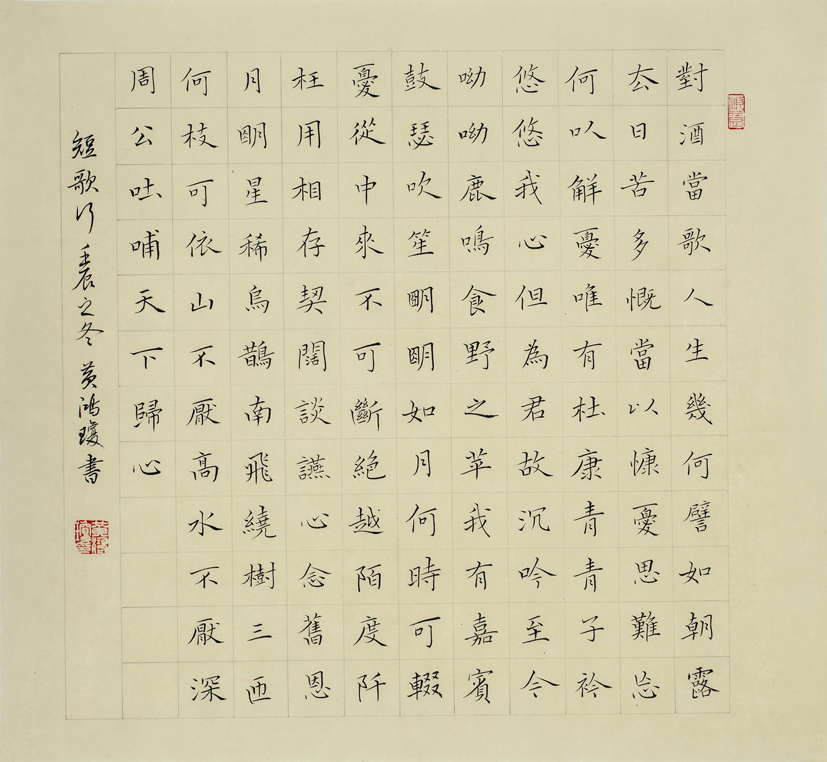 對酒當歌人生幾何譬如朝露
厺日苦多慨當以慷憂思難忘
何以解憂唯有杜康青青子衿
悠悠我心但為君故沉吟至今
呦呦鹿鳴食野之苹我有嘉賓
鼓瑟吹笙明明如月何時可輟
憂從中來不可斷絕越陌度阡
枉用相存契闊談讌心念舊恩
月明星稀烏鵲南飛繞樹三匝
何枝可依山不厭高水不厭深
周公吐哺天下歸心
短歌行 壬辰之冬 黃鴻瓊書